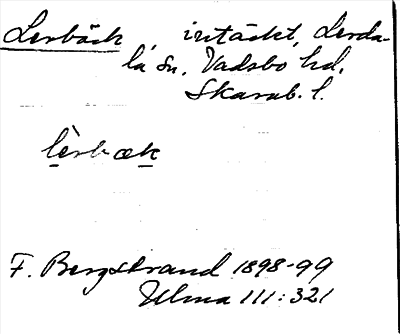 Lerbäck intäckt, Lerda-
la sn. Vadsbo hd.
Skarab. l.
lèrbæk
F. Bergstrand 1898-99
Ulma 111:321